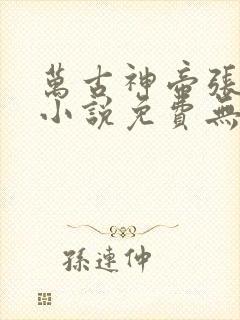 萬古神帝張
小說免費無
孫連仲